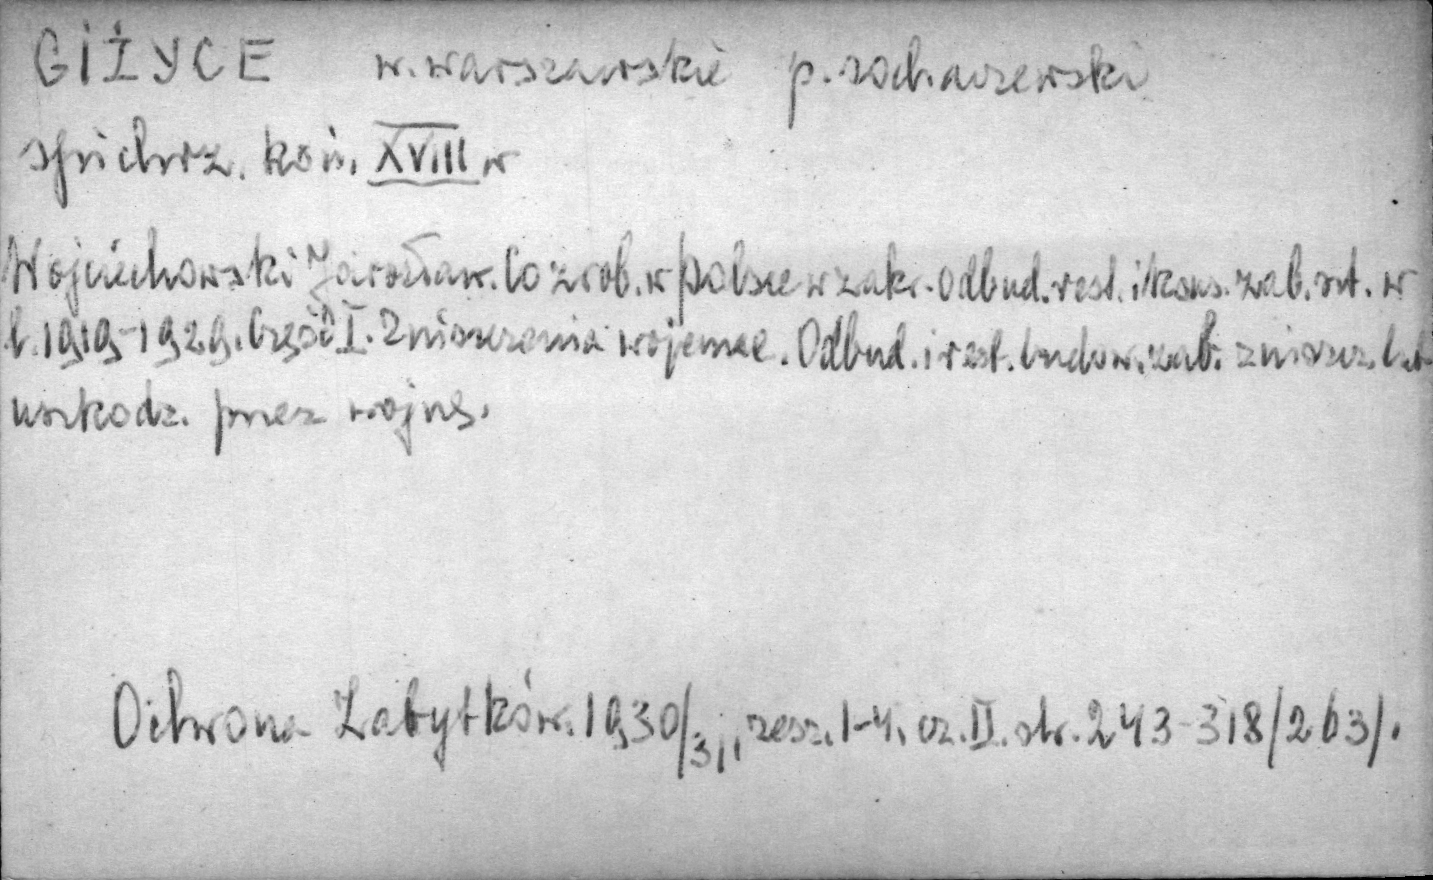 GIŻYCE w. warszawskie p. sochaczewski
spichrz. koń. XVIII w
Wojciechowski Jarosław. Co zrob. w Polsce w zakr. odbud. rest. i kons. zab. szt. w
l. 1919-1929. Część I. Zniszczenia wojenne. Odbud. i rest. budow. zab. zniszcz. lub
uszkodz. przez wojnę.
Ochrona Zabytków. 1930/31, zesz. 1-4. cz. II. str. 243-318/263/.